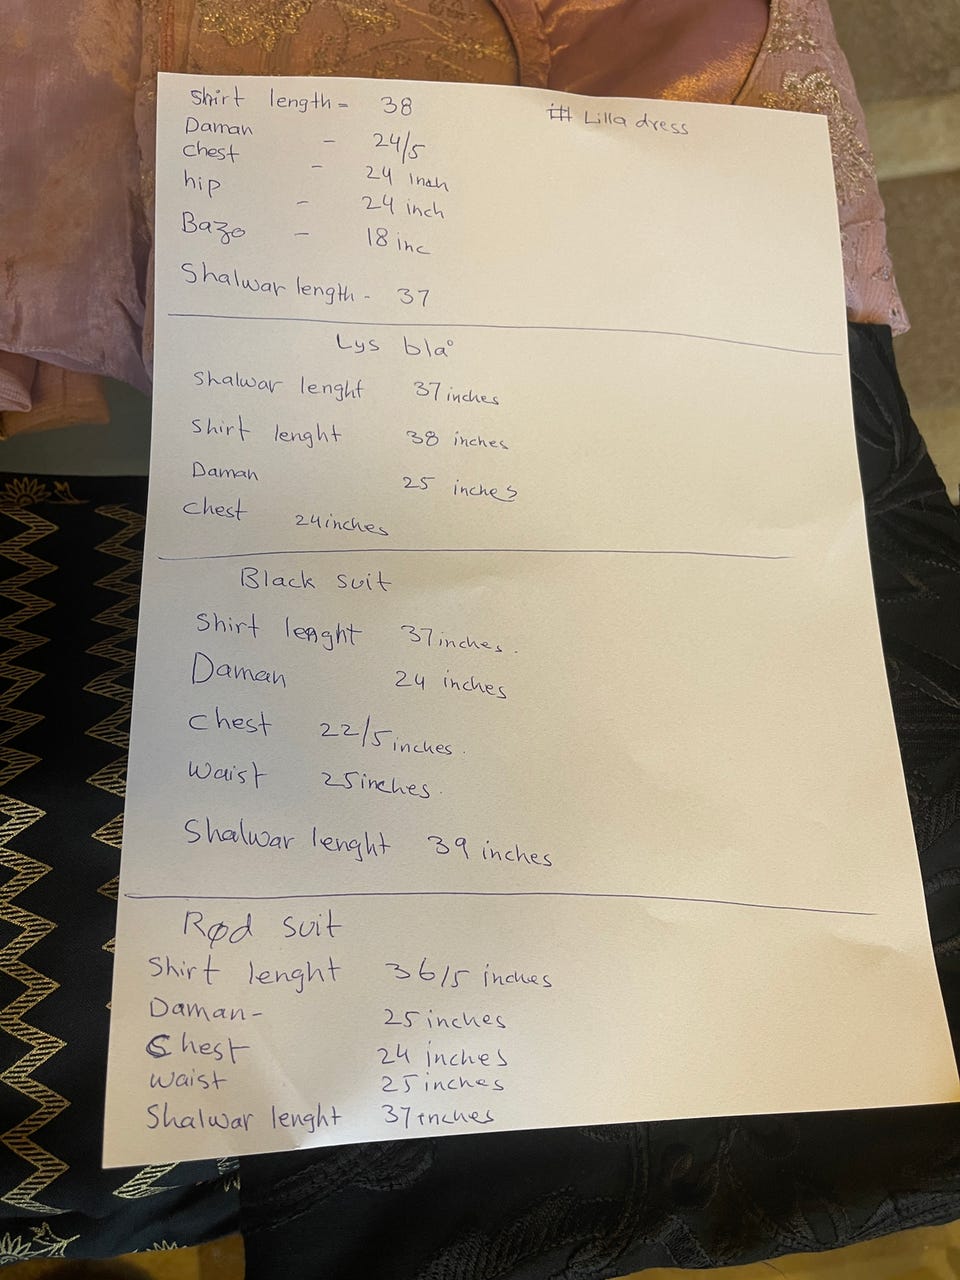 # Lilla dress
Shirt length = 38
Daman - 24/5
chest - 24 inch
hip - 24 inch
Bazo - 18 inc
Shalwar length - 37
Lys blå
Shalwar lenght 37 inches
Shirt lenght 38 inches
Daman 25 inches
Chest 24 inches
Black suit
Shirt lenght 37 inches.
Daman 24 inches
Chest 22/5 inches.
Waist 25 inches.
Shalwar lenght 39 inches
Rød suit
Shirt lenght 36/5 inches
Daman- 25 inches
Chest 24 inches
Waist 25 inches
Shalwar lenght 37 inches